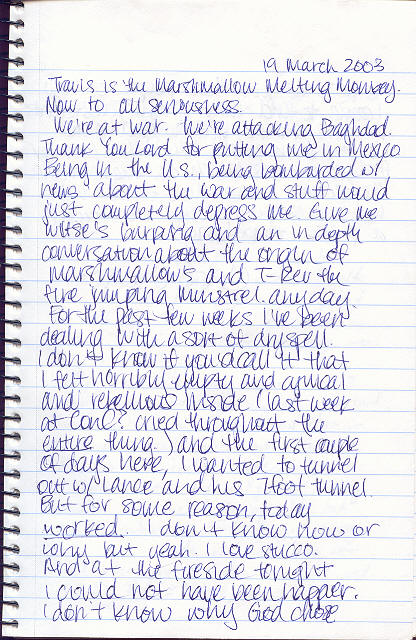 19 March 2003
Travis is the Marshmallow Melting Monkey.
Now to all seriousness.
We're at war. We're attacking Baghdad.
Thank You Lord for putting me in Mexico
Being in the U.S., being bombarded w/
news about the war and stuff would
just completely depress me. Give me
Witse's burping and an in depth
conversation about the origin of
marshmallows and T-Rev the
fire jumping minstrel. any day.
For the past few weeks I've been
dealing with a sort of dry spell.
I don't know if you'd call it that
I felt horribly empty and cynical
and rebellious inside (last week
at ConC? cried throughout the
entire thing.) and the first couple
of days here, I wanted to tunnel
out w/ Lance and his 7 foot tunnel.
But for some reason, today
worked. I don't know how or
why but yeah. I love stucco.
And at the fireside tonight
I could not have been happier.
I don't know why God chose